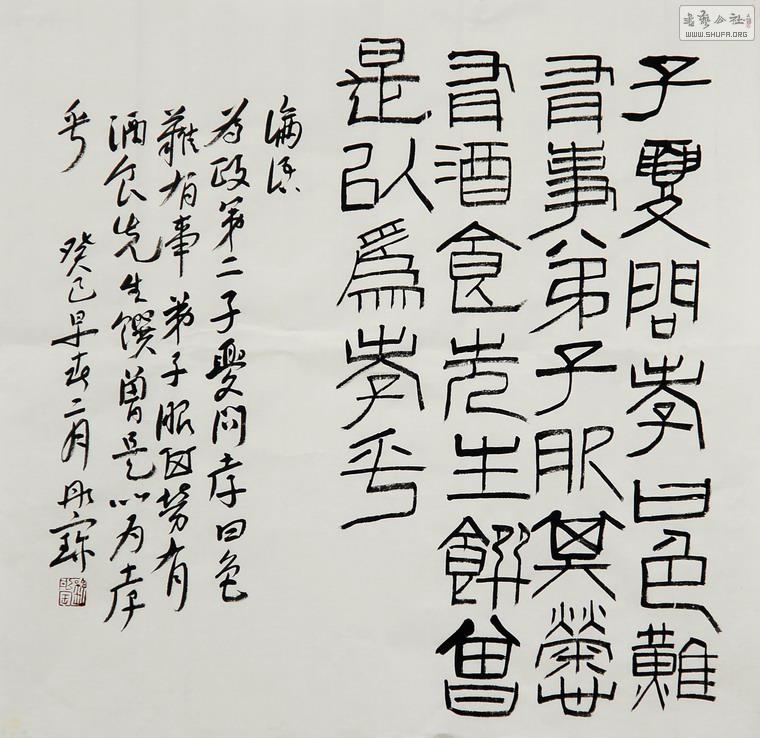 子夏問孝曰色難
有事弟子服其勞
有酒食先生饌曾
是以爲孝乎
論語
为政第二子夏問孝曰色
難有事弟子服其勞有
酒食先生饌曾是以为孝
乎 癸巳早春二月
书艺公社
WWW.SHUFA.ORG